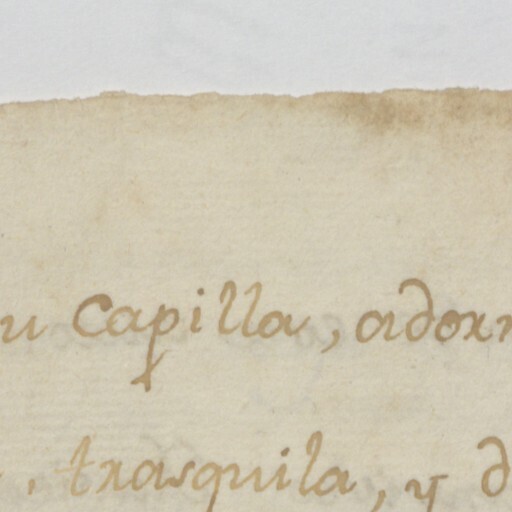 u Capilla, adorn
, trasquila, y d